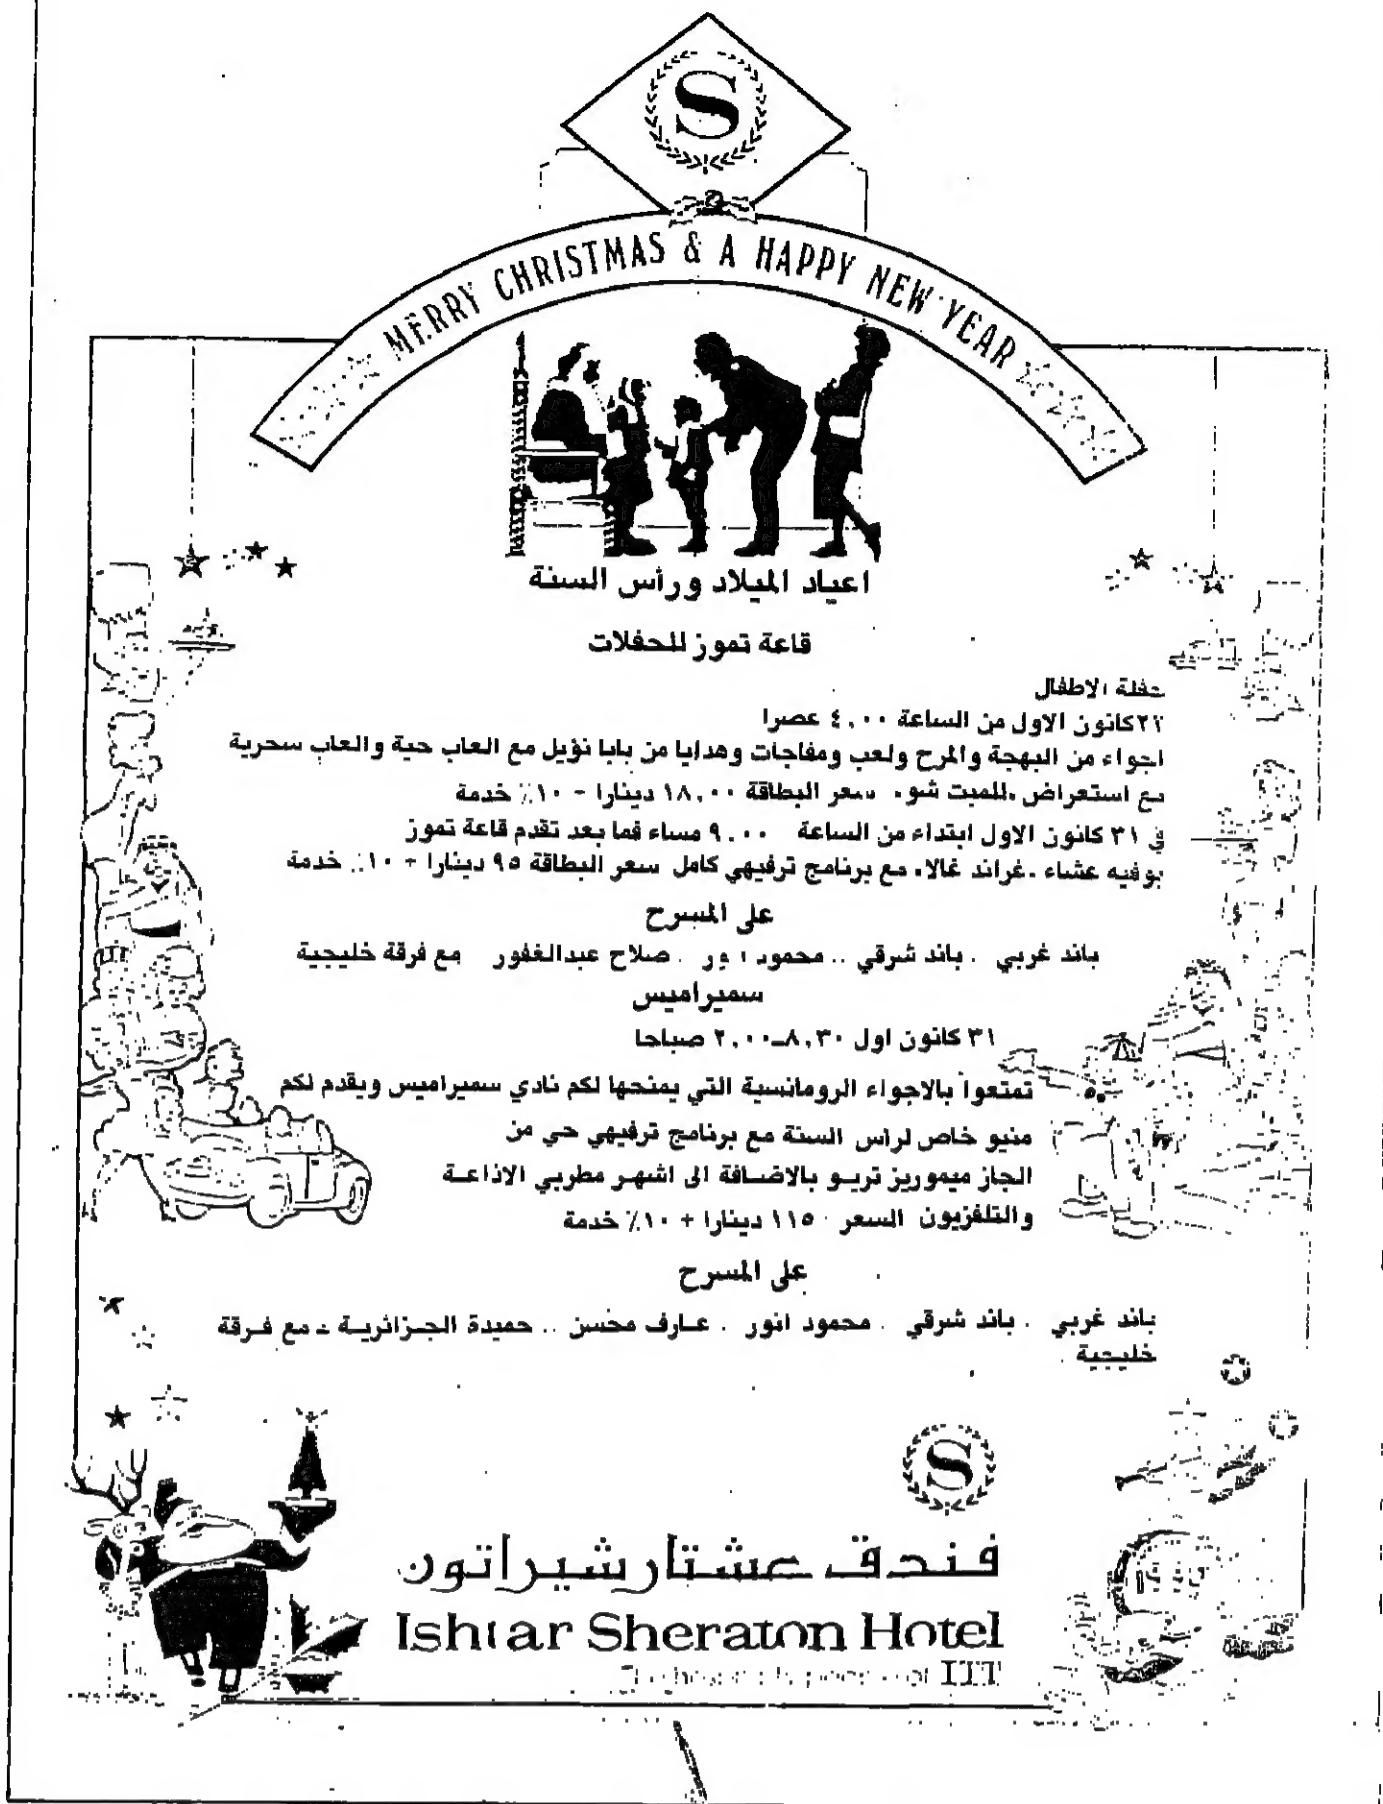 S
MERRY CHRISTMAS & A HAPPY NEW YEAR
اعياد الميلاد ورأس السنة
قاعة تموز للحفلات
حفلة الاطفال
كانون الاول من الساعة ٤,٠٠ عصرا
اجواء من البهجة والمرح ولعب ومفاجات وهدايا من بابا نؤيل مع العاب حية والعاب سحرية
مع استعراض شو. سعر البطاقة ١٨,٠٠ دينارا - ١٠٪ خدمة
في ٣١ كانون الاول ابتداء من الساعة ٩,٠٠ مساء فما بعد تقدم قاعة تموز
بوفيه عشاء .غراند غالا. مع برنامج ترفيهي كامل سعر البطاقة ٩٥ دينارا + ١٠٪ خدمة
على المسرح
باند غربي . باند شرقي .. محمود . صلاح عبدالغفور مع فرقة خليجية
سميراميس
٣١ كانون اول ٨,٣٠ــ٢,٠٠ صباحا
تمتعوا بالاجواء الرومانسية التي يمنحها لكم نادي سميراميس ويقدم لكم
منيو خاص لراس السنة مع برنامج ترفيهي حي من
الجاز ميموريز تريـو بالاضـافة الى اشهـر مطربي الاذاعـة
والتلفزيون السعر ١١٥ دينارا + ١٠٪ خدمة
على المسرح
باند غربي . باند شرقي . محمود انور . عـارف محسن .. حميدة الجـزائريـة ـ مع فـرقة
خليـجية .
S
فندق عشتار شيراتون
Ishtar Sheraton Hotel
of ITT